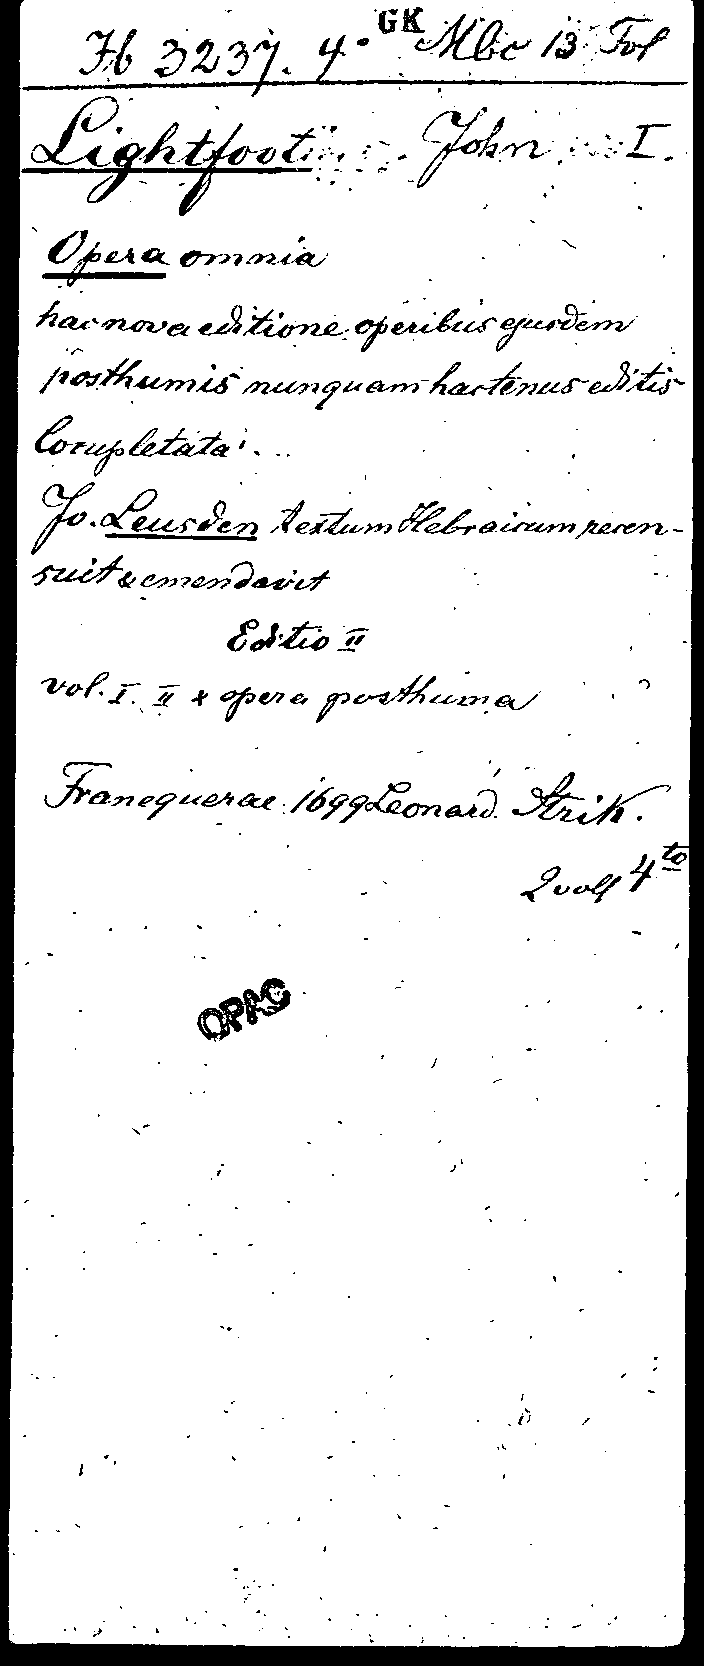 Hb 3237. 4° GK Mbc 13 Fol
Lightfoot John I.
Opera omnia
hac nova editione operibus ejusdem
posthumis nunquam hactenus editis
locupletata...
Jo. Leusden textum Hebraicum recen-
suit & emendavit
Editio II
vol. I. II & opera posthuma
Franequerae 1699 Leonard. Strik.
2 voll 4to
OPAC